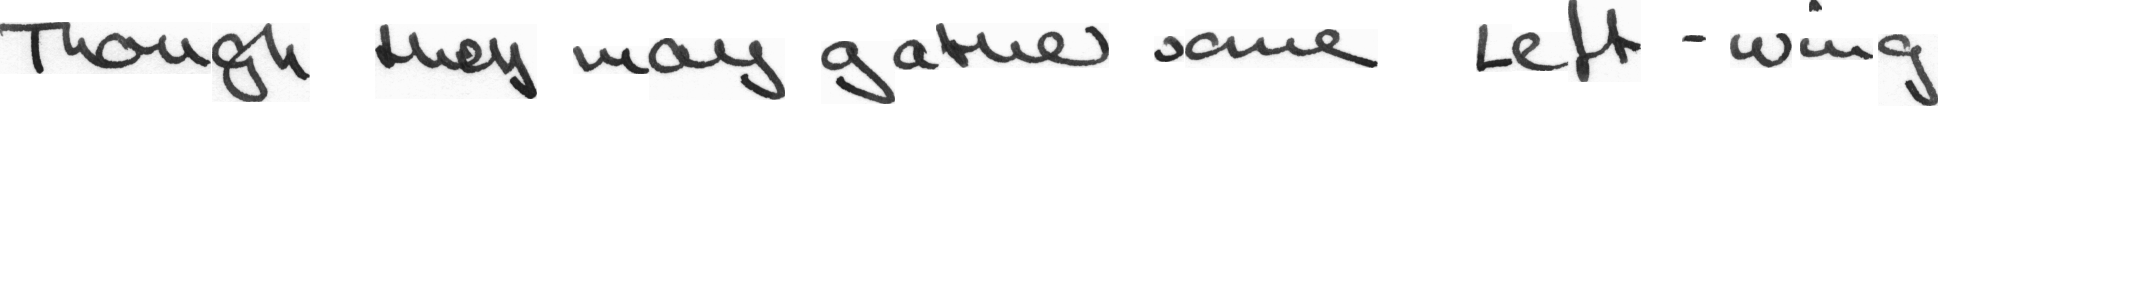 Though they may gather some Left-wing